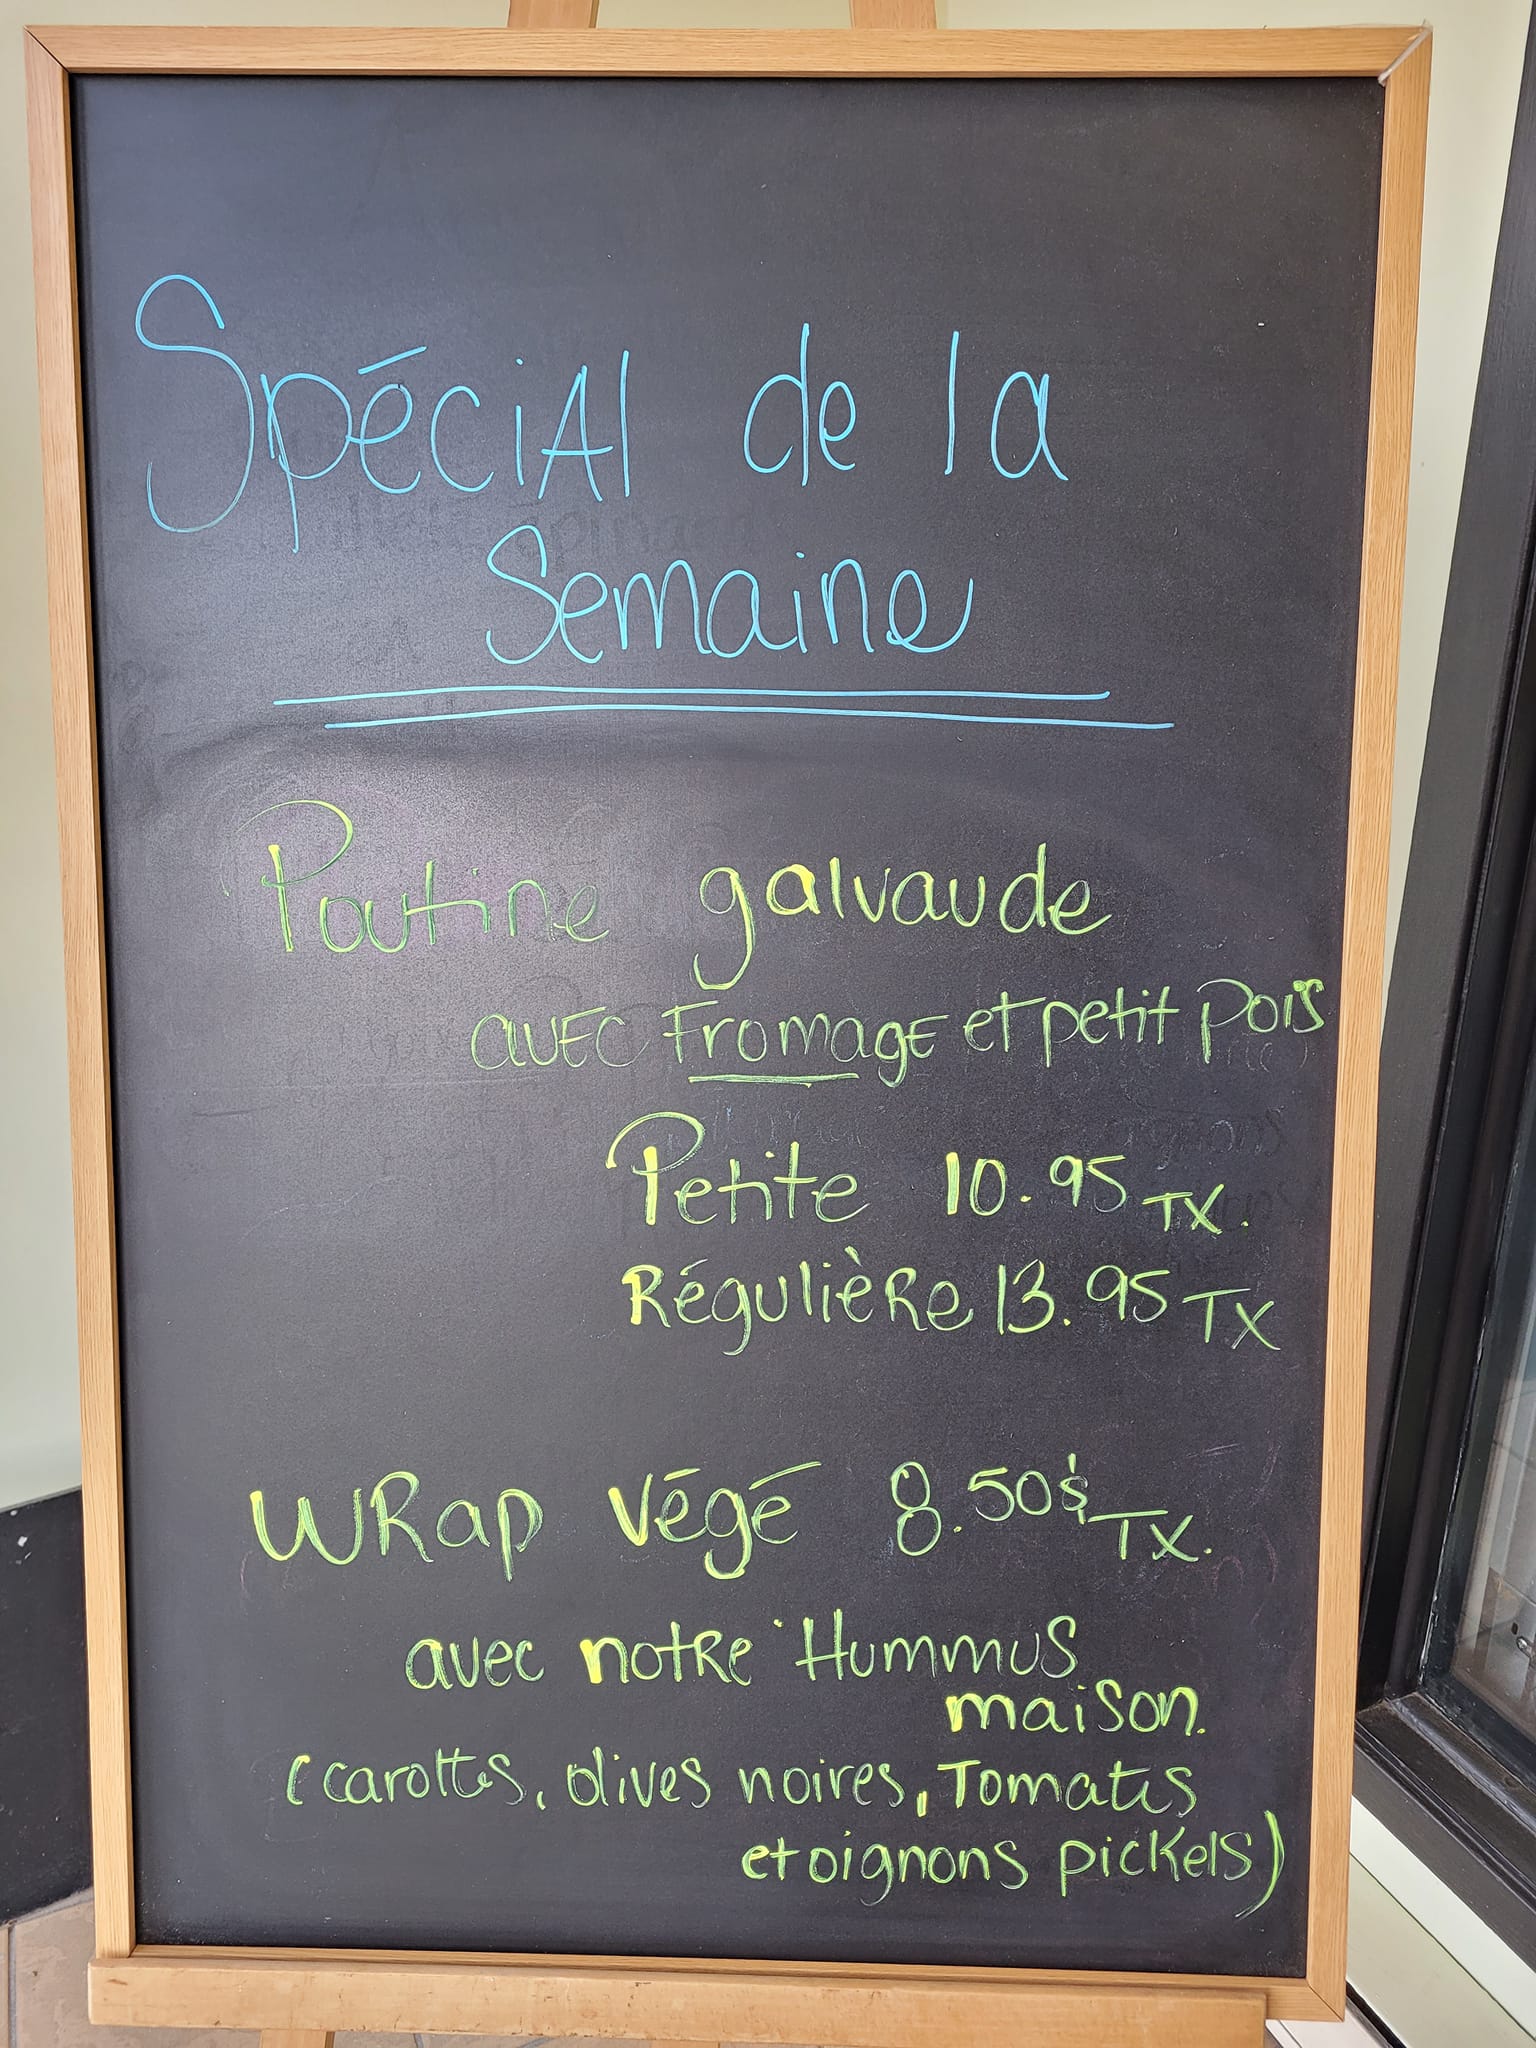 Spécial de la
Semaine
Poutine galvaude
avec Fromage et petit pois
Petite 10.95 TX.
Régulière 13.95 TX
Wrap végé 8.50$ TX.
avec notre Hummus
maison.
(carottes, olives noires, Tomates
et oignons pickels)